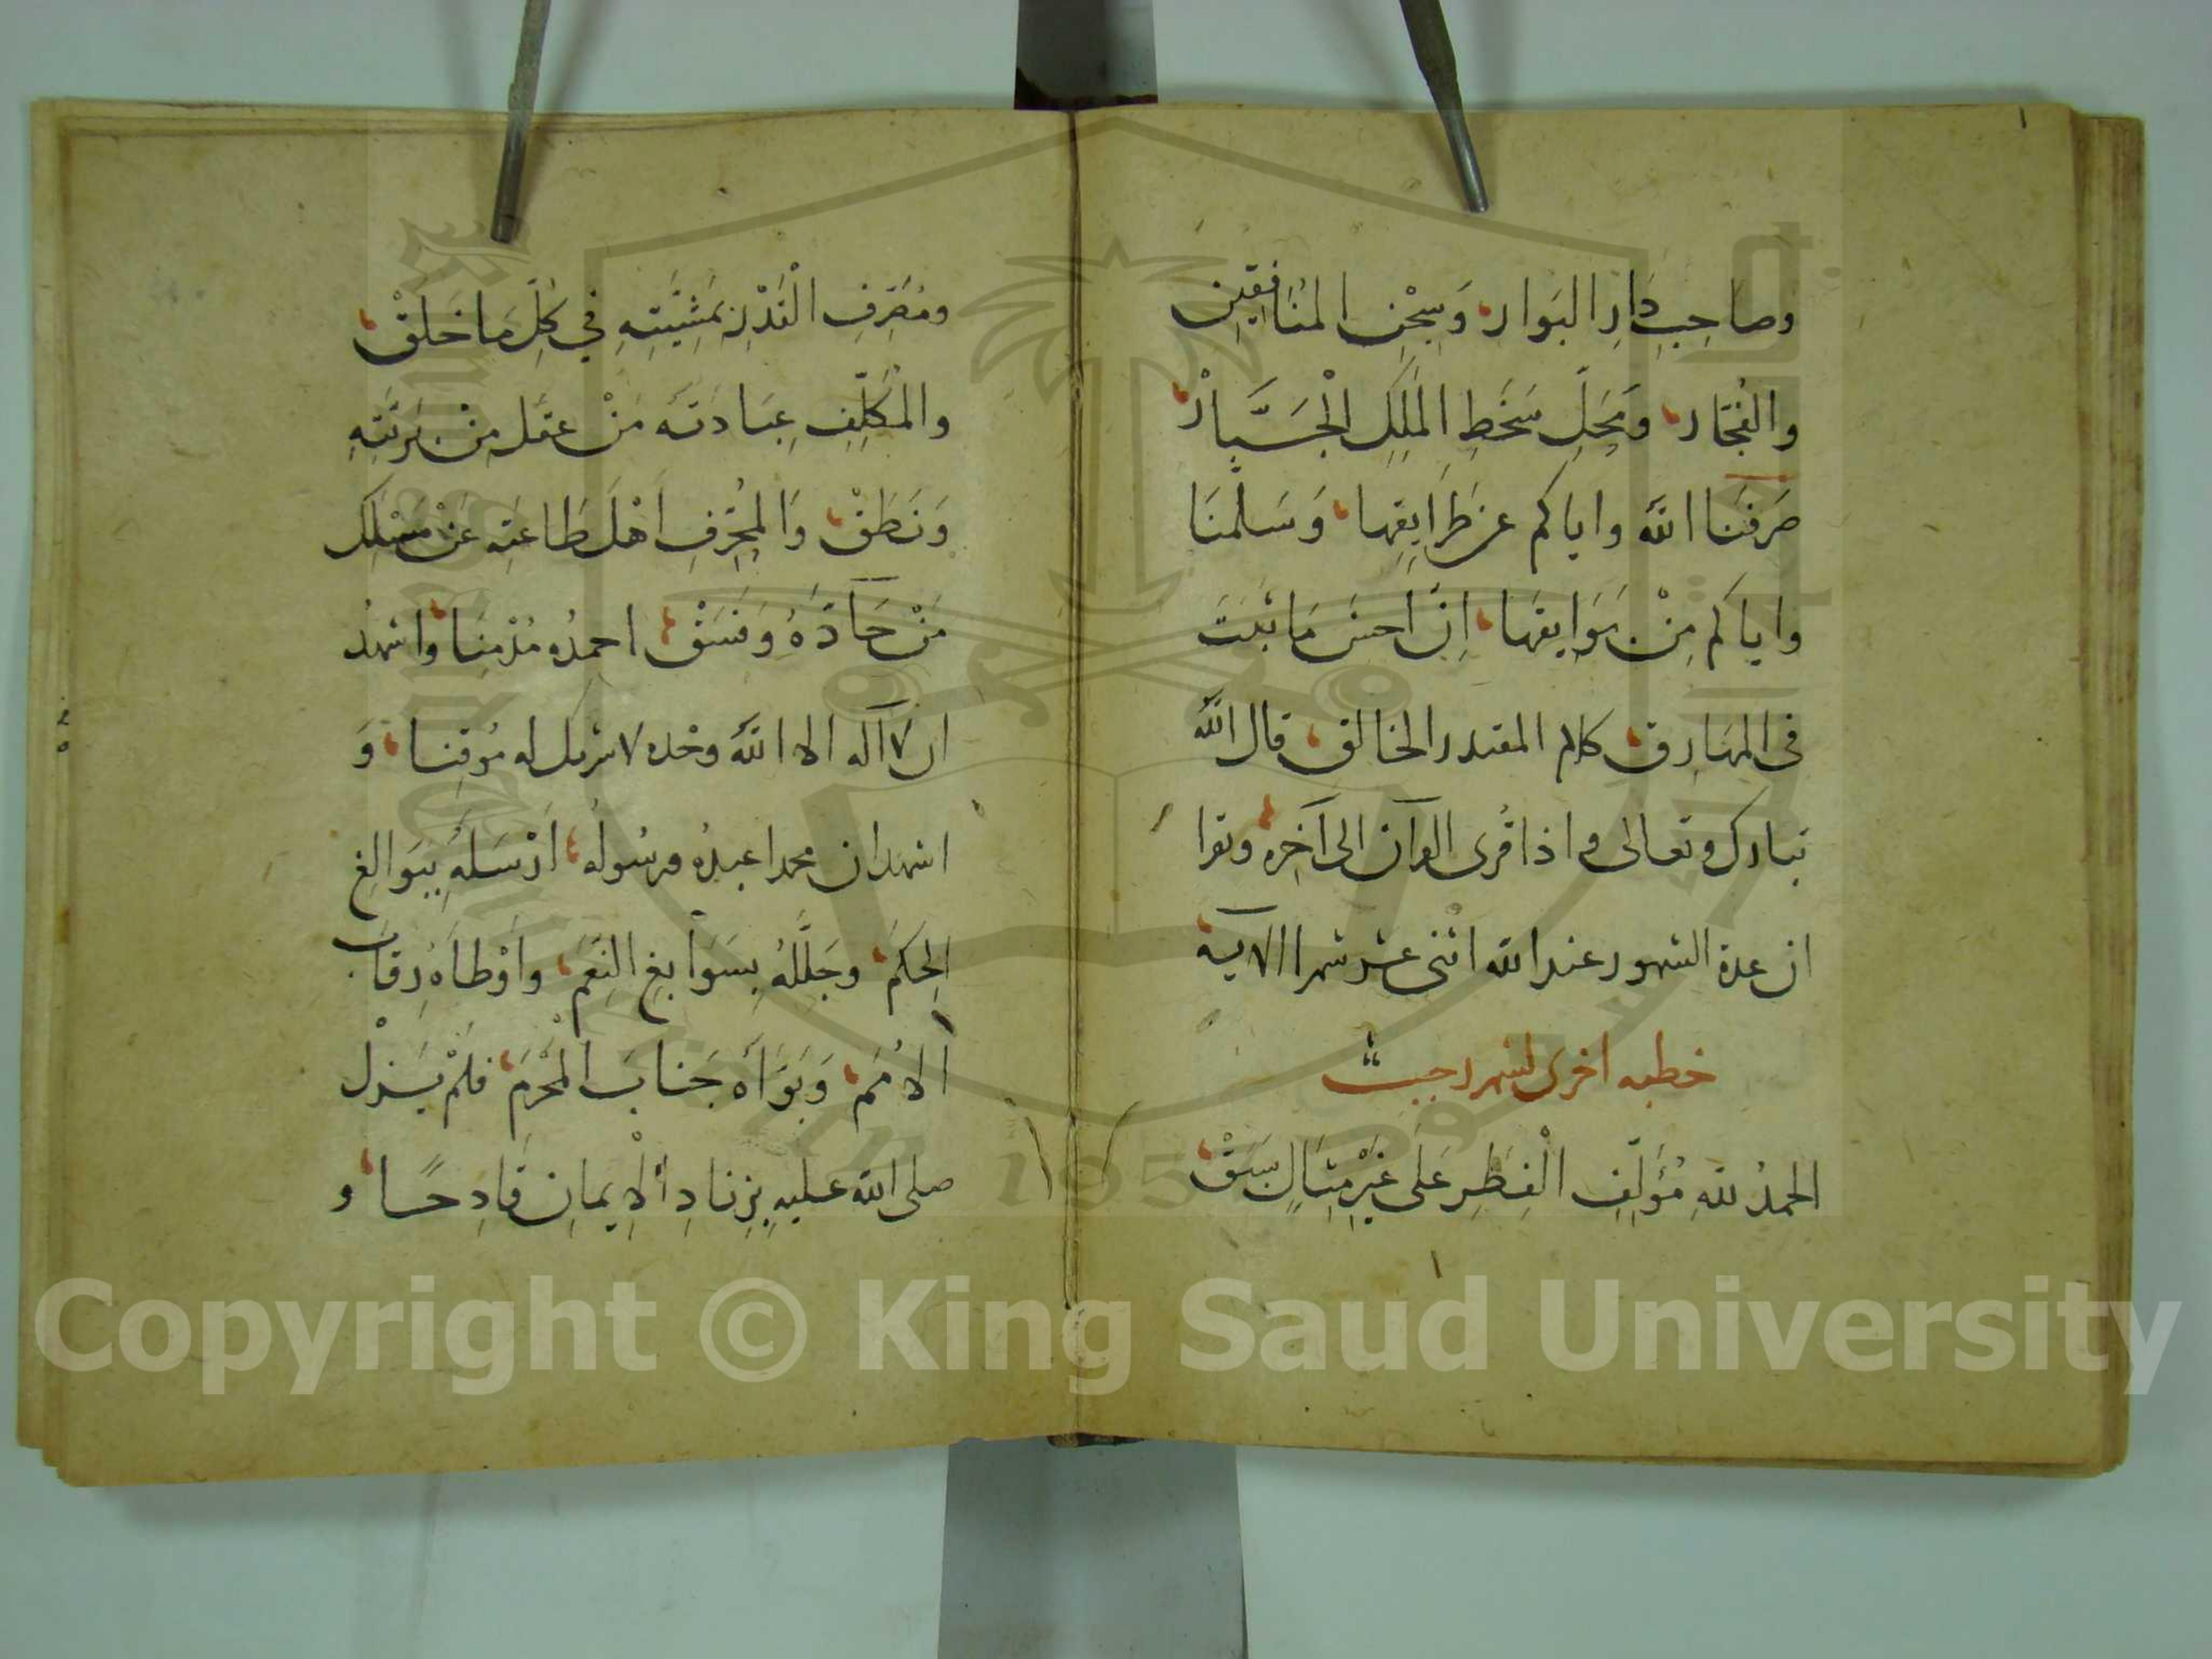 وصاحِبِ دَارِ البَوار، وَسِجْنِ المنَافِقِينَ
والفُجَّار، وَمَحَلِّ سَخَطِ المَلِكِ الْجَبَّارْ،
صَرَفَنَا اللَّه واياكم عن طَرَايِقِها، وَسَلَّمنَا
واياكم مِنْ بَوَايِقِهَا، اِنَّ اَحسَنَ مَا ثبتَ
فى المهَارِق، كلام المقتدر الخالق، قال اللَّه
تبارك وتعالى واذا قُرى القرآن الى آخِره، وتقرا
ان عدة الشهور عند الله اثنى عشر شهرا الآية،
خطبه اخرى لشهر رجب
الحمدُ للهِ مُؤَلِّفِ الْفِطَرِ عَلَى غَيْرِ مِثَالٍ سَبَقْ،
ومُصَرِّفِ الْقَدْرِ بمَشِيَّتِهِ فِي كُلِّ مَا خَلَقْ،
والْمكَلِّفِ عِبَادَتَه مَنْ عقَل مِنْ بَرِيَّتِهِ
وَنَطَقْ، وَالمُحَرِّفِ اهْلَ طَاعتِهِ عَنْ مَسْلَكِ
مَنْ حَآدَّهُ وَفَسَقْ، احمدُه مُذْمِنَا، واشهدُ
ان لآ آله الا اللَّه وحْده لا شريك له مُوقِنا، وَ
اشهد ان محمدا عبدُه ورسُولُه، اَرْسَلَهُ بِبَوالِغِ
الحِكَم، وجَلَّلَهُ بِسَوَابغِ النِّعَم، واَوْطاَهُ رِقابَ
الاُمَم، وَبَوَّاَه جَنابَ الْحَرَم، فلَمْ يَزلْ
صلى الله عليهِ بِزِنادِ الْاِيمانِ قَادِحًا، و
Copyright © King Saud University